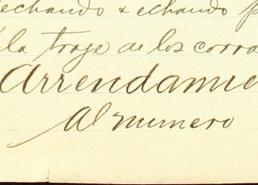 echando & echando p
la troje de los corra
Arrendamie
Al numero